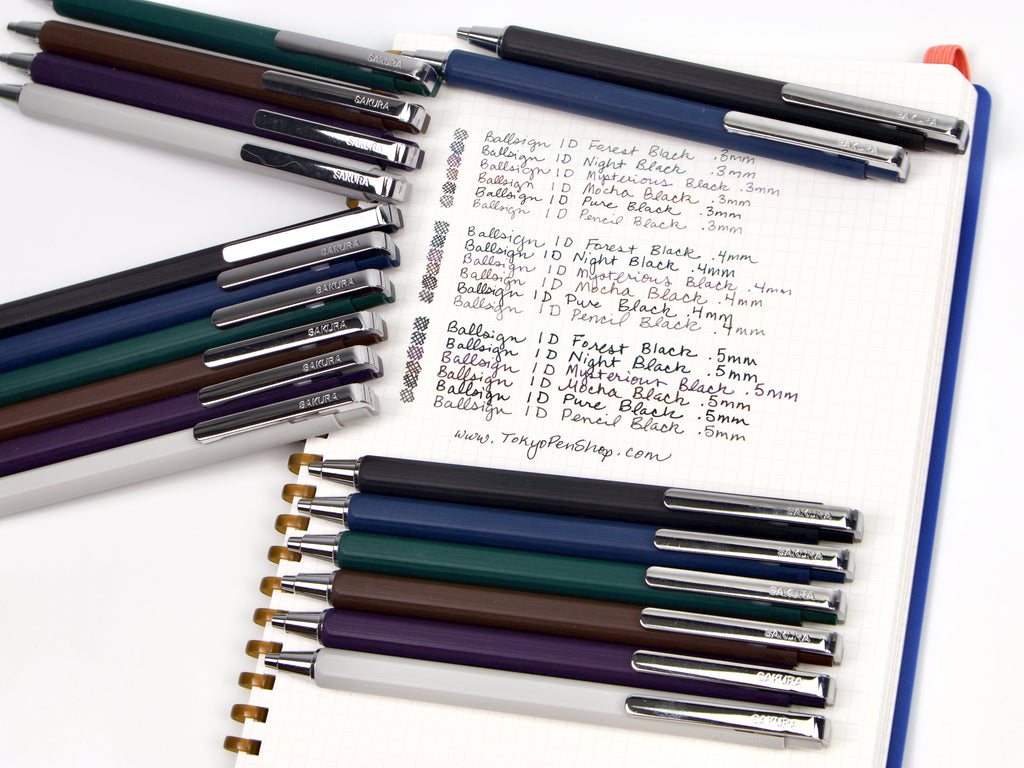 SAKURA
SAKURA
SAKURA
SAKURA
SAKURA
SAKURA
Ballsign 1D Forest Black .3mm
Ballsign 1D Night Black .3mm
Ballsign 1D Mysterious Black .3mm
Ballsign 1D Mocha Black .3mm
Ballsign 1D Pure Black .3mm
Ballsign 1D Pencil Black .3mm
SAKURA
SAKURA
SAKURA
SAKURA
SAKURA
Ballsign 1D Forest Black .4mm
Ballsign 1D Night Black .4mm
Ballsign 1D Mysterious Black .4mm
Ballsign 1D Mocha Black .4mm
Ballsign 1D Pure Black .4mm
Ballsign 1D Pencil Black .4mm
Ballsign 1D Forest Black .5mm
Ballsign 1D Night Black .5mm
Ballsign 1D Mysterious Black .5mm
Ballsign 1D Mocha Black .5mm
Ballsign 1D Pure Black .5mm
Ballsign 1D Pencil Black .5mm
www.TokyoPenShop.com
SAKURA
SAKURA
SAKURA
SAKURA
SAKURA
SAKURA